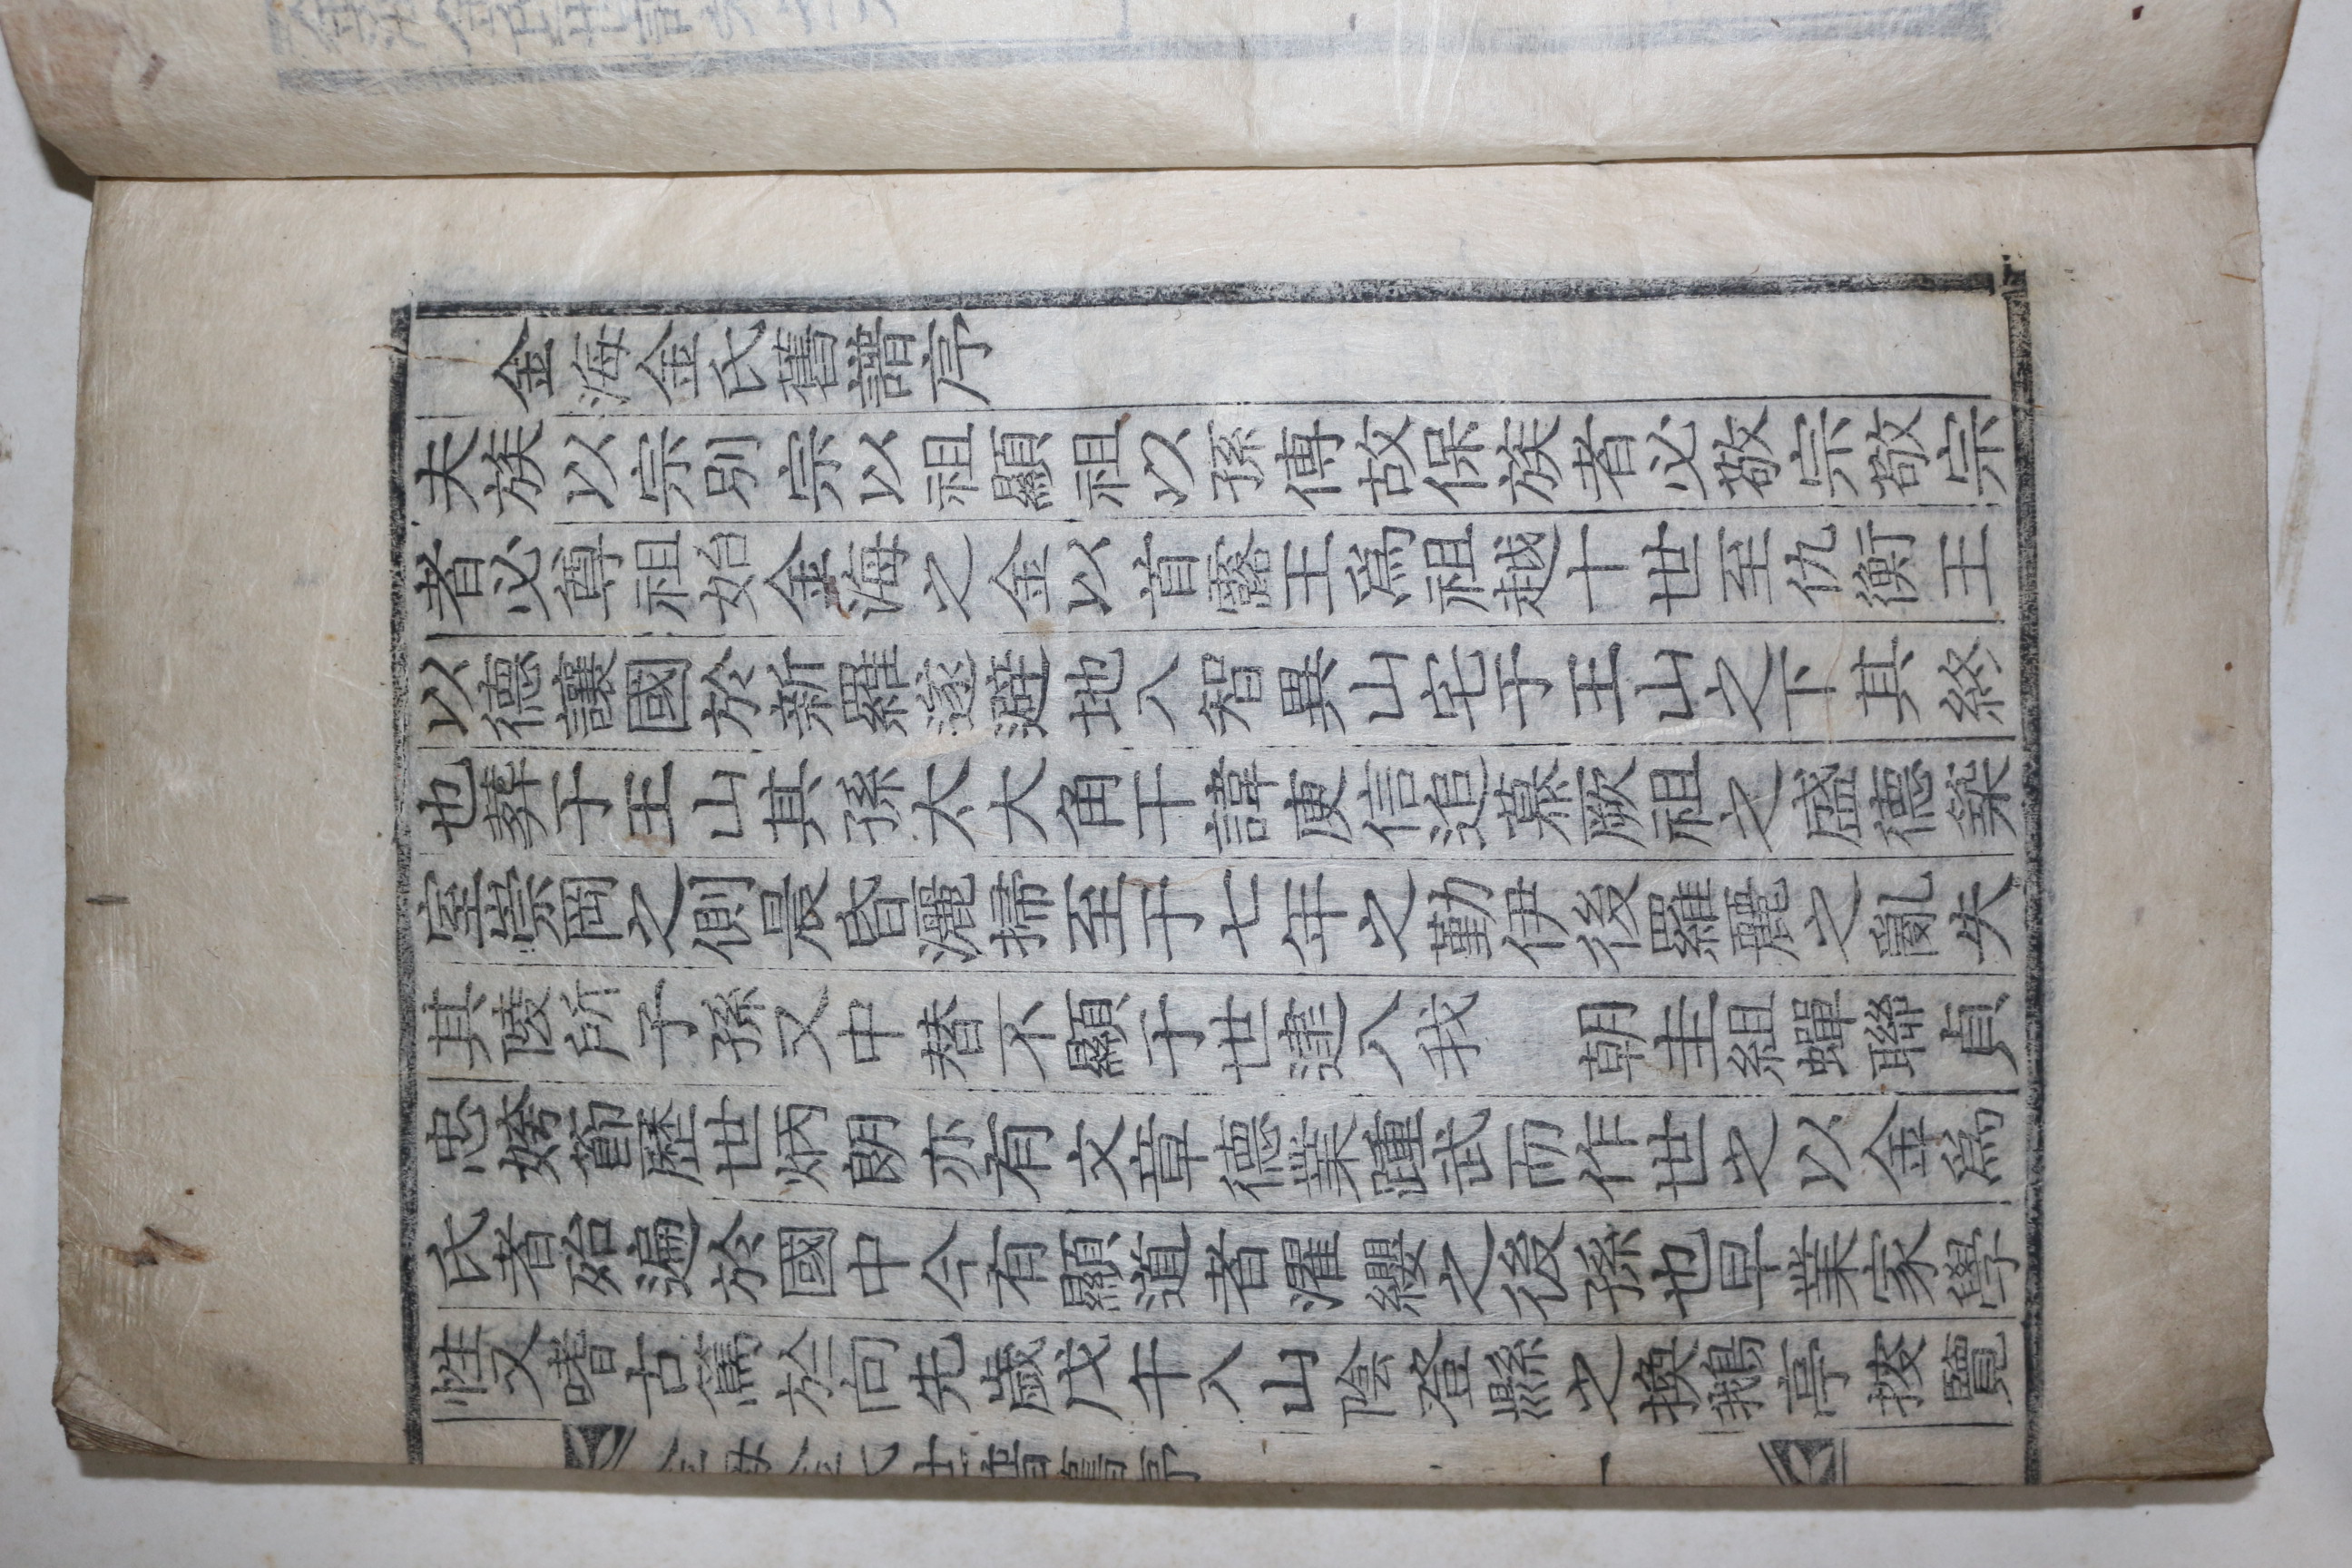 金海金氏舊譜序
夫族以宗別宗以祖顯祖以孫傳故保族者必敬宗敬宗
者必尊祖始金海之金以首露王爲祖越十世至仇衡王
以德讓國於新羅遂避地入智異山宅于王山之下其終
也葬于王山其孫太大角干諱庾信追慕厥祖之盛德築
室崇岡之側晨昏灑掃至于七年之勤伊後羅麗之亂失
其陵所子孫又中替不顯于世逮入我 朝圭組蟬聯貞
忠姱節歷世炳朗亦有文章德業踵武而作世之以金爲
氏者殆遍於國中今有顯道者濯纓之後孫也早業家學
性又嗜古篤於向先歲戊午入山陰登縣之換鵝亭按覽
金海金氏世譜舊序 一